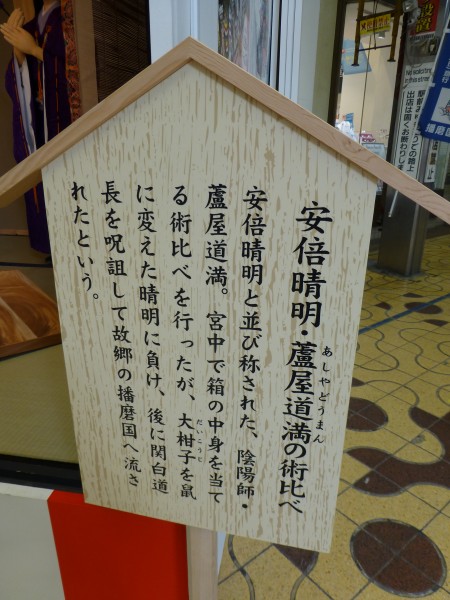 安倍晴明・蘆屋道満の術比べ
あしやどうまん
安倍晴明と並び称された、陰陽師・
蘆屋道満。宮中で箱の中身を当て
る術比べを行ったが、大柑子を鼠
だいこうじ
に変えた晴明に負け、後に関白道
長を呪詛して故郷の播磨国へ流さ
れたという。